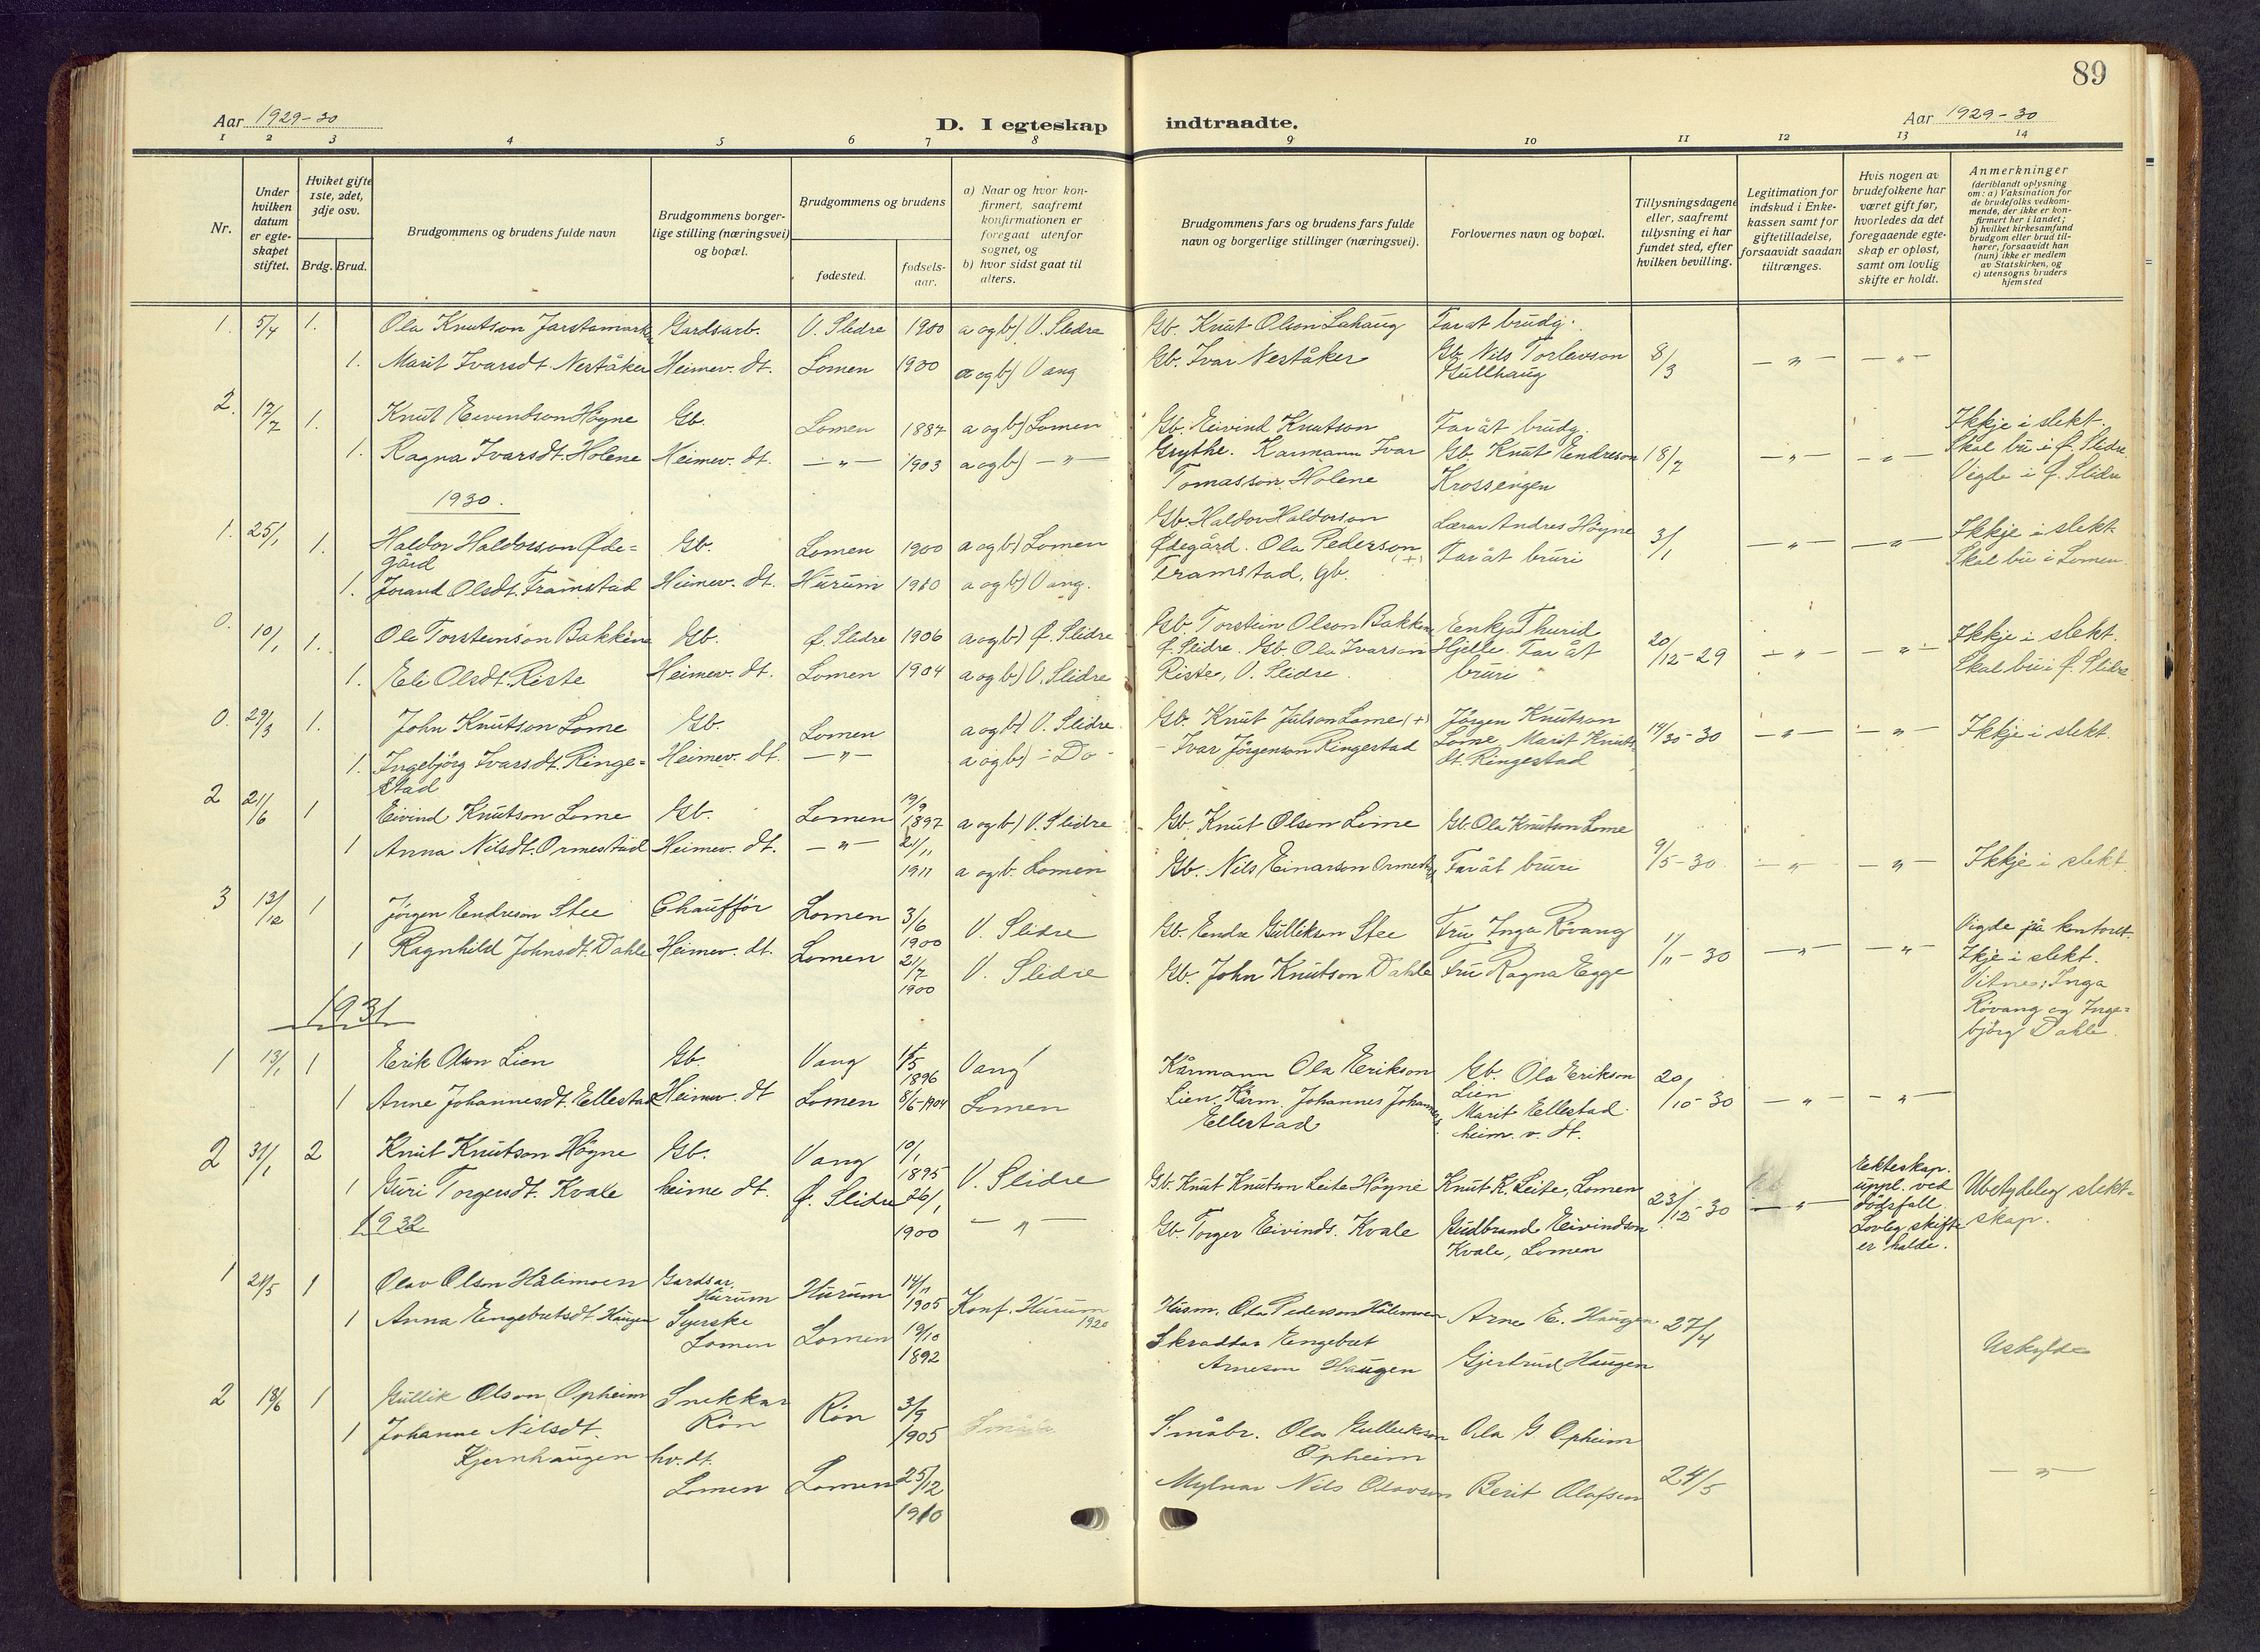 89
Aar 1929-30
D. I egteskap indtraadte.
Aar 1929-30
1 2 3 4 5 6 7 8 9 10 11 12 13 14
Nr.
Under hvilken datum er egteskapet stiftet.
Hviket gifte 1ste, 2det, 3dje osv.
Brdg. Brud.
Brudgommens og brudens fulde navn
Brudgommens borgerlige stilling (næringsvei) og bopæl.
Brudgommens og brudens
fødested.
fødselsaar.
a) Naar og hvor konfirmert, saafremt konfirmationen er foregaat utenfor sognet, og
b) hvor sidst gaat til alters.
Brudgommens fars og brudens fars fulde navn og borgerlige stillinger (næringsvei).
Forlovernes navn og bopæl.
Tillysningsdagene eller, saafremt tillysning ei har fundet sted, efter hvilken bevilling.
Legitimation for indskud i Enkekassen samt for giftetilladelse, forsaavidt saadan tiltrænges.
Hvis nogen av brudefolkene har været gift før, hvorledes da det foregaaende egteskap er opløst, samt om lovlig skifte er holdt.
Anmerkninger
(deriblandt oplysning om: a) Vaksination for de brudefolks vedkommende, der ikke er konfirmert her i landet; b) hvilket kirkesamfund brudgom eller brud tilhører, forsaavidt han (hun) ikke er medlem av Statskirken, og c) utensogns bruders hjemsted
1. 5/4 1. Ola Knutson Jarstamarken Gardsarb. V. Slidre 1900 a og b) V. Slidre Gb. Knut Olson Lahaug Far at brudg.
1. Marit Ivarsdt. Neståker Heimev. dt. Lomen 1900 a og b) Vang Gb. Ivar Neståker Gb. Nils Torleivson Gullhaug 8/3 — " — — " —
2. 17/7 1. Knut Eivendson Högne Gb. Lomen 1887 a og b) Lomen Gb. Eivind Knutson Far åt brudg. Ikkje i slekt.
1. Ragna Ivarsdt. Holene Heimev. dt. — " — 1903 a og b) — " — Grythe. Karmann Ivar Gb. Knut Endreson 18/7 — " — — " — Skal bu i Ø. Slidre
Tomasson Holene Krossengen Vigde i Ø. Slidre
1930.
1. 25/1 1. Haldor Haldorsson Ødegård Gb. Lomen 1900 a og b) Lomen Gb. Haldor Haldorson Lærar Andres Högne 3/1 — " — — " — Ikkje i slekt
1. Jorand Olsdt. Framstad Heimev. dt. Hurum 1910 a og b) Vang. Ødegård. Ola Pederson (+) Framstad, gb. Far åt bruri Skal bu i Lomen.
0. 10/1 1. Ole Torsteinson Bakkene Gb. Ø. Slidre 1906 a og b) Ø. Slidre Gb. Torstein Olson Bakken Eenkja Thurid 20/12-29 — " — — " — Ikkje i slekt.
1. Eli Olsdt. Riste Heimev. dt. Lomen 1904 a og b) V. Slidre Ø. Slidre. Gb. Ola Ivarson Riste, V. Slidre. Hjelle. Far åt bruri Skal bu i Ø. Slidre
0. 29/3 1. John Knutson Lome Gb. Lomen a og b) V. Slidre Gb. Knut Julson Lome (+) Jörgen Knutson 30 — " — — " — Ikkje i slekt.
1. Ingebjörg Ivarsdt. Ringestad Heimev. dt. — " — a og b) - Do - - Ivar Jörgenson Ringestad Lome, Marit Knutsdt. Ringestad
2 21/6 1 Eivind Knutson Lome Gb. Lomen 19/9 1897 a og b) V. Slidre Gb. Knut Olson Lome Gb. Ola Knutson Lome
1 Anna Nilsdt. Ormestad Heimev. dt. — " — 21/11 1911 a og b. Lomen Gb. Nils Einarson Ormestad Far åt bruri 9/5-30 — " — — " — Ikkje i slekt
3 13/12 1 Jörgen Endreson Stee Chafför Lomen 3/6 1900 V. Slidre Gb. Endre Gullikson Stee Fru Inga Rövang 11-30 — " — — " — Vigde på kontoret.
1 Ragnhild Johnsdt. Dahle Heimev. dt. Lomen 21/7 1900 V. Slidre Gb. John Knutson Dahle Fru Ragna Egge Ikje i slekt.
Vitne: Inga Rövang og Ingebjörg Dahle.
1931
1 13/1 1 Erik Olson Lien Gb. Vang 1896 Vang Kårmann Ola Erikson Gb. Ola Erikson 20/10-30 — " — — " —
1 Anne Johannesdt. Ellestad Heimev. dt Lomen 8/6-1904 Lomen Lien, Kårm. Johannes Johannes. Ellestad Lien Marit Ellestad heim. v. dt.
2 31/1 2 Knut Knutson Högne Gb. Vang 10/1 1895 V. Slidre Gb. Knut Knutson Leite Högne Knut K. Leite, Lomen 23/12-30 — " — Eekteskap. uppl. ved dödsfall. Lovleg skifte er halde. Ubetydeleg slektskap.
1 Guri Torgersdt. Kvale heime dt. Ø. Slidre 26/1 1900 — " — Gb. Torger Eivinds. Kvale Gudbrand Eivindson Kvale, Lomen
1932
1 21/5 1 Olav Olson Hålimoen Gardsar. Hurum Hurum 14/11 1905 Konf. Hurum 1920 Husm. Ola Pederson Hålimoen Arne E. Haugen 27/4
1 Anna Engebretsdt Haugen Syerske Lomen Lomen 19/10 1892 Skraddar Engebret Arneson Haugen Gjertrud Haugen Uskylde
2 18/6 1 Gullik Olson Opheim Snekkar Rön Rön 3/9 1905 Småbr. Ola Gulleikson Opheim Ola G Opheim
1 Johanne Nilsdt. Kjernhaugen hv. dt. Lomen Lomen 25/12 1910 Mylnar Nils Olavson Berit Olafsen 24/5 — " —